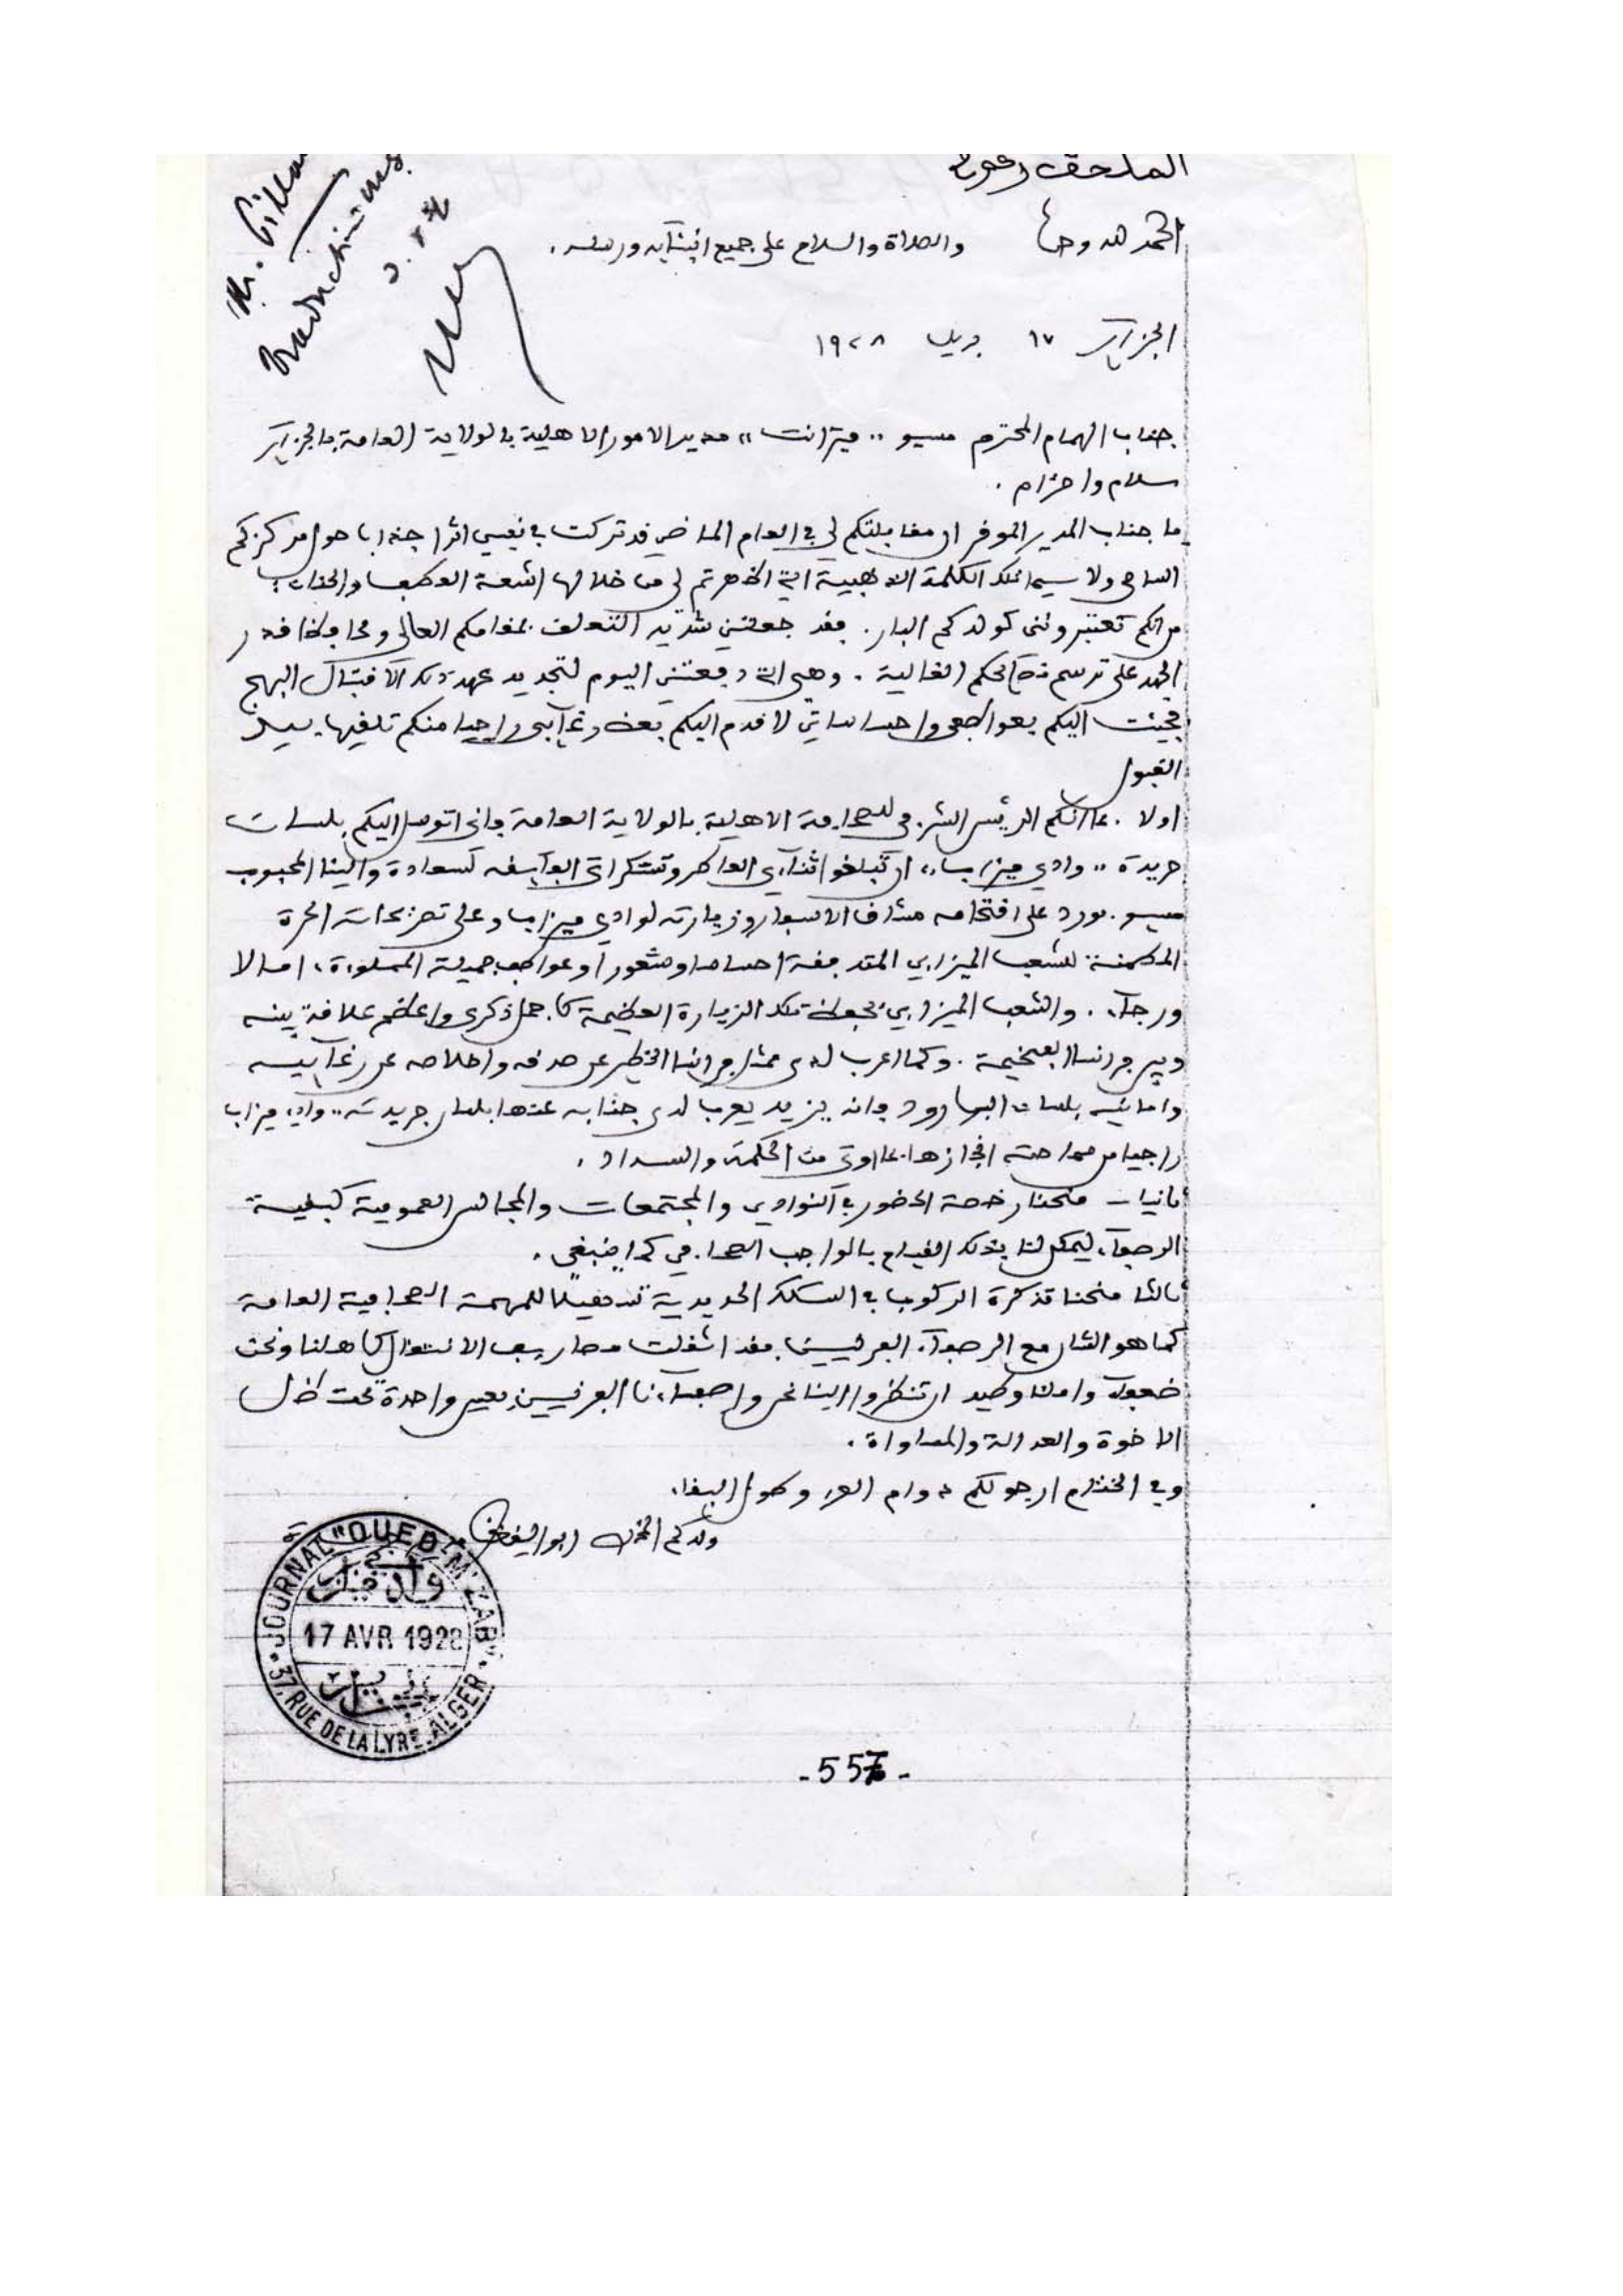 الملحق رقم
الحمد لله وحده والصلاة والسلام على جميع انبيائه ورسله.
الجزائر ١٧ ١٩٢٨
جناب الهمام المحترم مسيو ,,ميرانت,, مدير الامور الاهلية بالولاية العامة بالجزائر
سلام واحترام.
يا جناب المدير الموقر ان مقابلتكم لي في العام الماضي قد تركت في نفسي اثرا جذابا حول مركزكم
السامي ولا سيما تلك الكلمة الذهبية التي اظهرتم لي من خلالها اشعة العطف والحنان
من انكم تعتبرونني كولدكم البار. فقد جعلتني شديد التعلق بمقامكم العالي ومحافظا قدر
الجهد على ترسم نصائحكم الغالية. وهي التي دفعتني اليوم لتجديد عهد ذلك الاقتبال البهج
فجئت اليكم بعواطفي واحساساتي لاقدم اليكم بعض رغائبي راجيا منكم تلقيها بيد
القبول
اولا. بما انكم الرئيس الشرفي للصحافة الاهلية بالولاية العامة فاني اتوسل اليكم بلسان
جريدة ,,وادي ميزاب,, ان تبلغوا ثنائي العاطر وتشكراتي الفائقة لسعادة والينا المحبوب
مسيو بورد على اقتحامه مشاق الاسفار وزيارته لوادي ميزاب وعلى تصريحاته الحرة
المطمنة للشعب الميزابي المتدفقة احساسا وشعورا وعواطف جميلة المملوءة امالا
ورجاء. والشعب الميزابي يحفظ تلك الزيارة العظيمة كاجمل ذكرى واعظم علاقة بينه
وبين فرانسا الفخيمة. وكما اعرب لدى ممثل فرانسا الخطير عن صدقه واخلاصه عن رغائبه
وامانيه بلسان البارود فانه يزيد يعرب لدى جنابه عنها بلسان جريدته ,,وادي ميزاب
راجيا من سماحته انجازها بما اوتي من الحكمة والسداد.
ثانيا - منحنا رخصة الحضور في النوادي والمجتمعات والمجالس العمومية كبقية
الرصفاء ليمكن لنا بذلك القيام بالواجب الصحافي كما ينبغي.
ثالثا منحنا تذكرة الركوب في السكك الحديدية تسهيلا للمهمة الصحافية العامة
كما هو الشان مع الرصفاء الفرنسيين فقد اثقلت مصاريف الانتقال كاهلنا ونحن
ضعفاء واملنا وطيد ان تنظروا الينا نحن ورصفاءنا الفرنسيين بعين واحدة تحت ظل
الاخوة والعدالة والمساواة.
وفي الختام ارجو لكم دوام العز وطول البقاء
ولدكم المخلص ابو اليقظان
JOURNAL "OUED M'ZAB"
وادي ميزاب
17 AVR 1928
37, RUE DE LA LYRE. ALGER
-557-